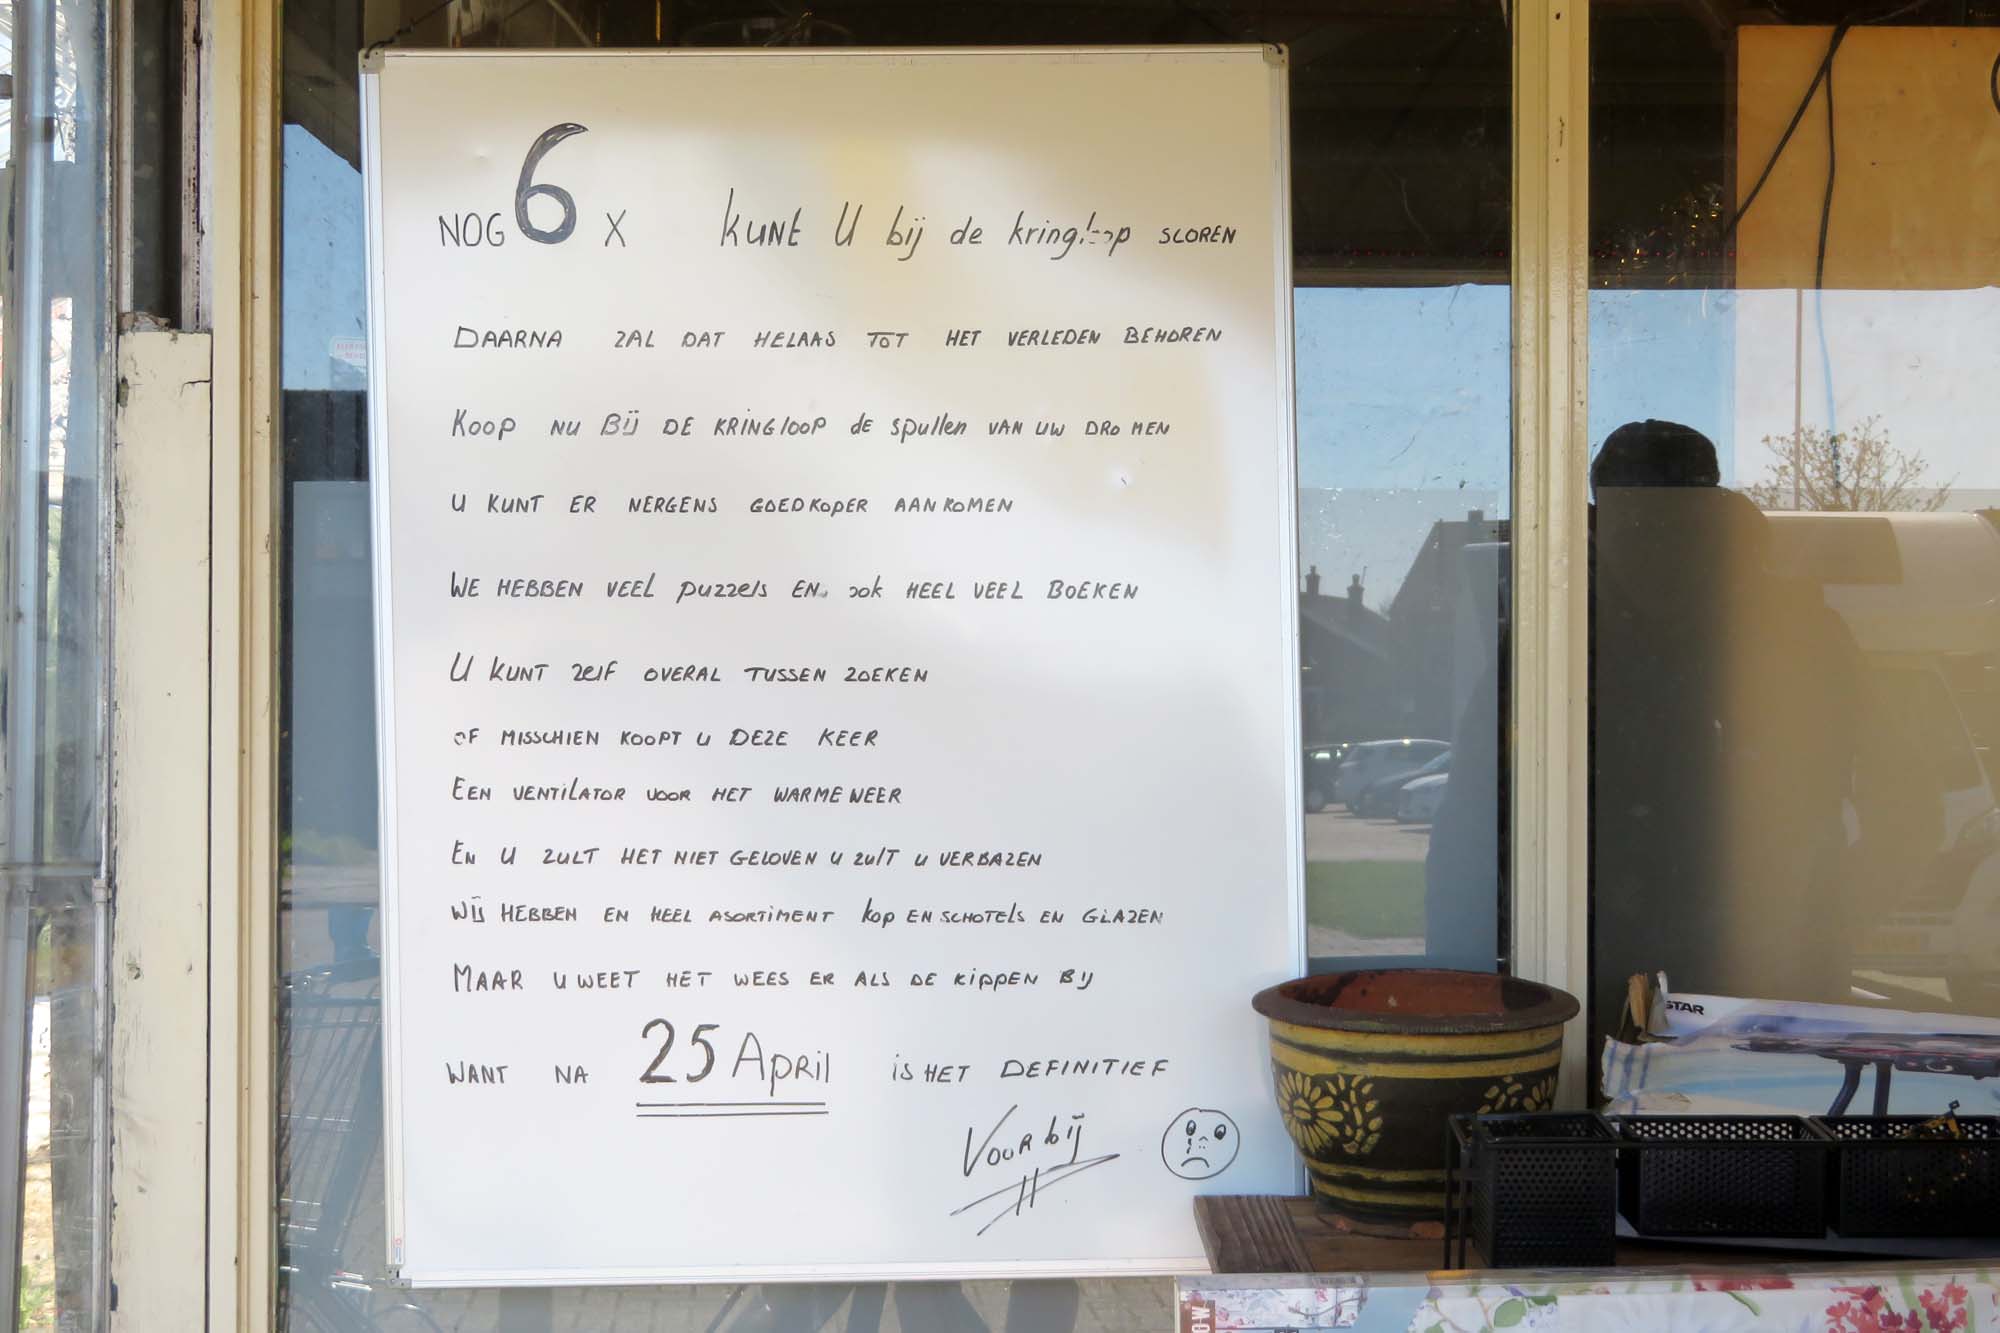 NOG 6 X KUNt U bij de kringloop SLOREN
DAARNA ZAL DAT HELAAS TOT HET VERLEDEN BEHOREN
KOOP NU BIJ DE KRINGlOOP de spullen VAN UW DROMEN
U KUNT ER NERGENS GOEDKOPER AANKOMEN
WE HEBBEN VEEL puzzels EN ook HEEL VEEL BOEKEN
U KUNT zelf OVERAL TUSSEN ZOEKEN
OF MISSCHIEN KOOPT U DEZE KEER
EEN VENTILATOR VOOR HET WARME WEER
EN U ZULT HET NIET GELOVEN U ZULT U VERBAZEN
WIJ HEBBEN EN HEEL ASORTIMENT kop EN SCHOTELS EN GLAZEN
MAAR U WEET HET WEES ER ALS DE KIPPEN BIJ
WANT NA 25 APRil is HET DEFINITIEF
VOORbij
STAR